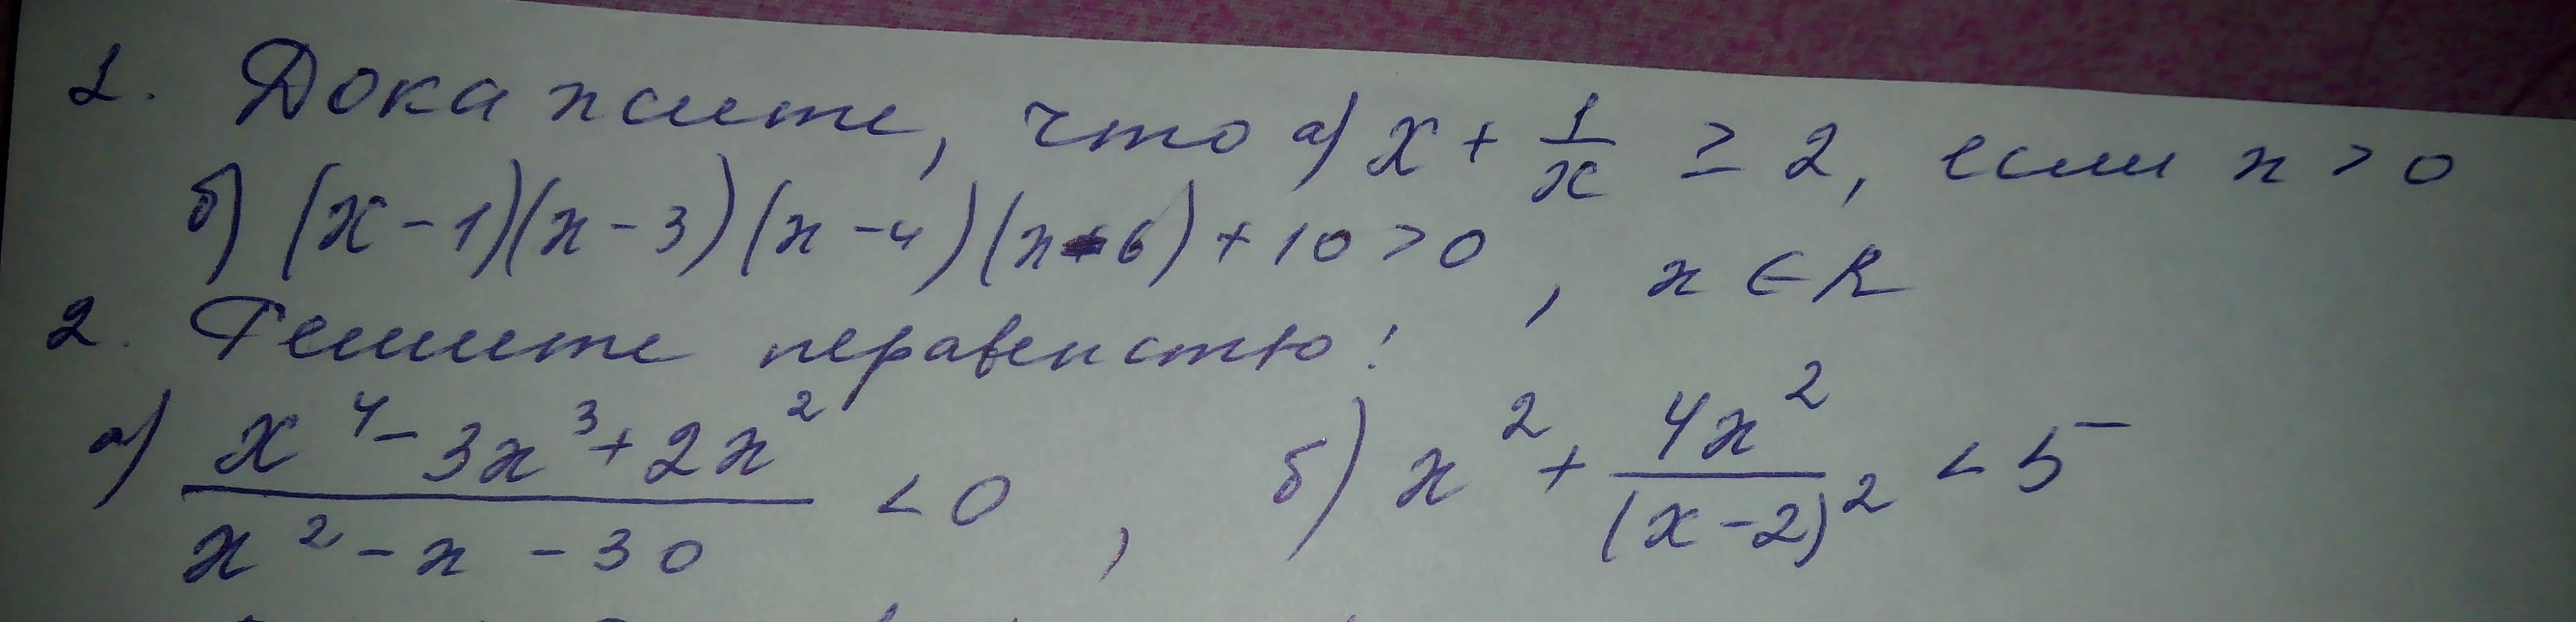 1. Докажите, что а) x + 1/x ≥ 2, если x > 0
б) (x - 1)(x - 3)(x - 4)(x - 6) + 10 > 0, x ∈ R
2. Решите неравенство:
а) (x^4 - 3x^3 + 2x^2)/(x^2 - x - 30) < 0, б) x^2 + 4x^2/(x - 2)^2 < 5